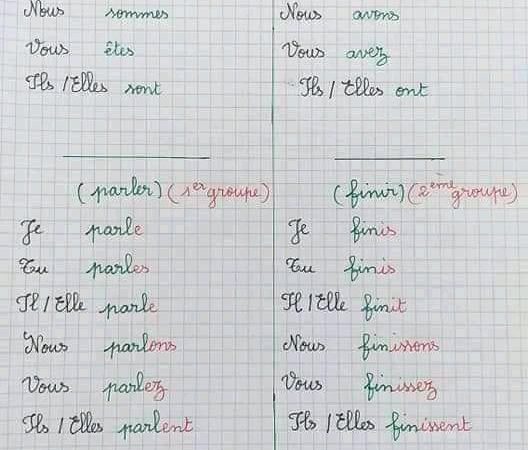 Nous sommes
Vous êtes
Ils / Elles sont
Nous avons
Vous avez
Ils / Elles ont
(parler) (1er groupe)
Je parle
Tu parles
Il / Elle parle
Nous parlons
Vous parlez
Ils / Elles parlent
(finir) (2ème groupe)
Je finis
Tu finis
Il / Elle finit
Nous finissons
Vous finissez
Ils / Elles finissent